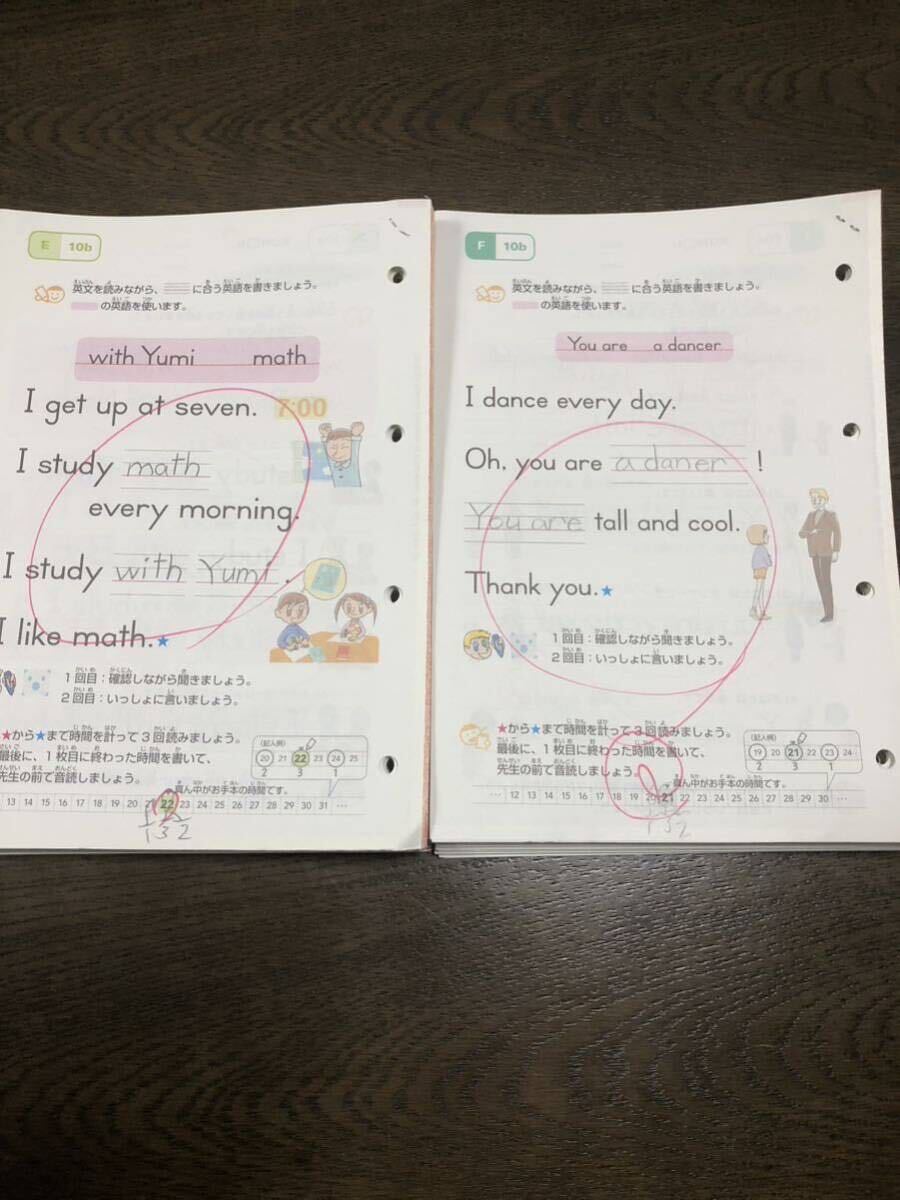 E 10b
英文を読みながら、 に合う英語を書きましょう。
の英語を使います。
with Yumi math
I get up at seven. 7:00
I study math
every morning.
I study with Yumi .
I like math.★
1回目：確認しながら聞きましょう。
2回目：いっしょに言いましょう。
★から★まで時間を計って3回読みましょう。
最後に、1枚目に終わった時間を書いて、
先生の前で音読しましょう。
(記入例)
20 21 22 23 24 25
2 3 1
真ん中がお手本の時間です。
13 14 15 16 17 18 19 20 22 23 24 25 26 27 28 29 30 31 …
1 3 2
F 10b
英文を読みながら、 に合う英語を書きましょう。
の英語を使います。
You are a dancer
I dance every day.
Oh, you are a daner !
You are tall and cool.
Thank you.★
1回目：確認しながら聞きましょう。
2回目：いっしょに言いましょう。
★から★まで時間を計って3回読みましょう。
最後に、1枚目に終わった時間を書いて、
先生の前で音読しましょう。
(記入例)
19 20 21 22 23 24
2 3 1
真ん中がお手本の時間です。
… 12 13 14 15 16 17 18 19 20 21 22 23 24 25 26 27 28 29 30 …
1 3 2